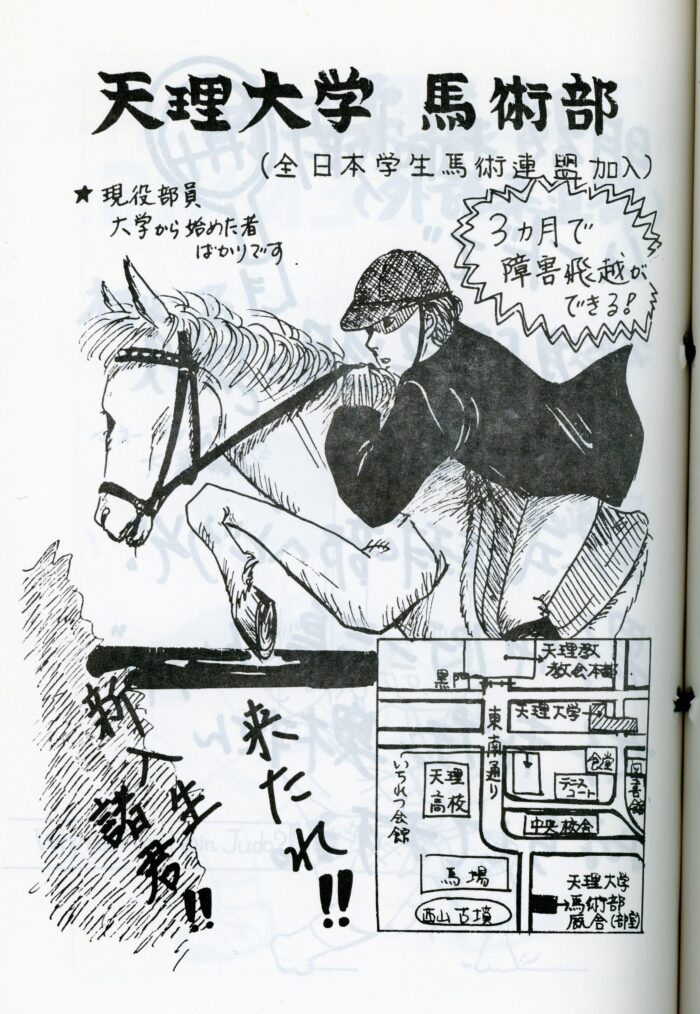 天理大学 馬術部
(全日本学生馬術連盟加入)
★ 現役部員
大学から始めた者
ばかりです
3ヵ月で
障害飛越が
できる!
新入生
諸君!!
来たれ!!
天理教
教会本部
黒門
東南通り
天理大学
いちれつ会館
天理
高校
食堂
テニス
コート
図書館
中央校舎
馬場
西山古墳
天理大学
馬術部
厩舎(部室)